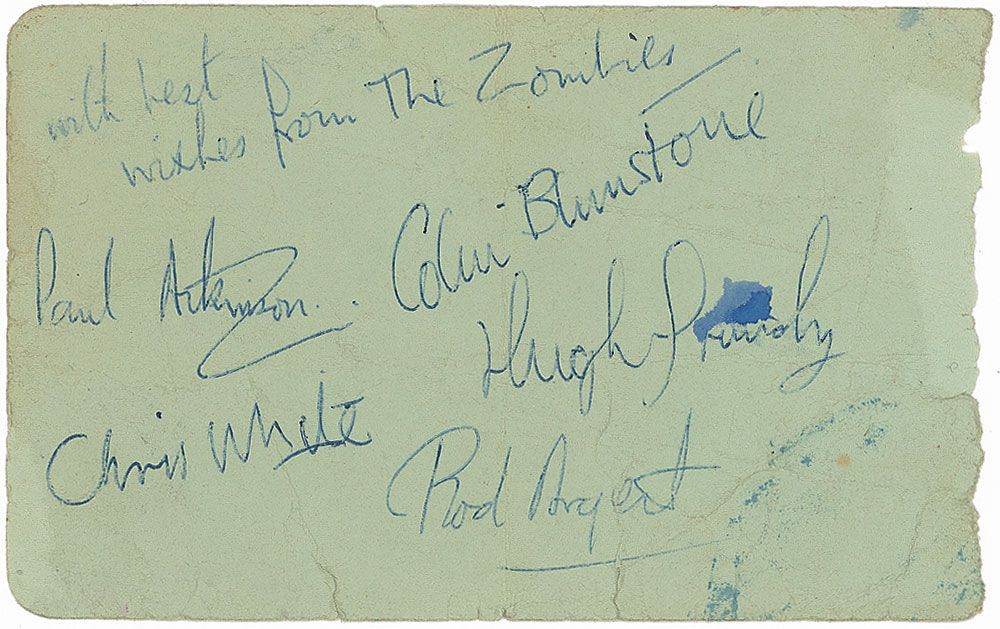 with best
wishes from The Zombies
Paul Atkinson.
Colin Blunstone
Hugh Grundy
Chris White
Rod Argent